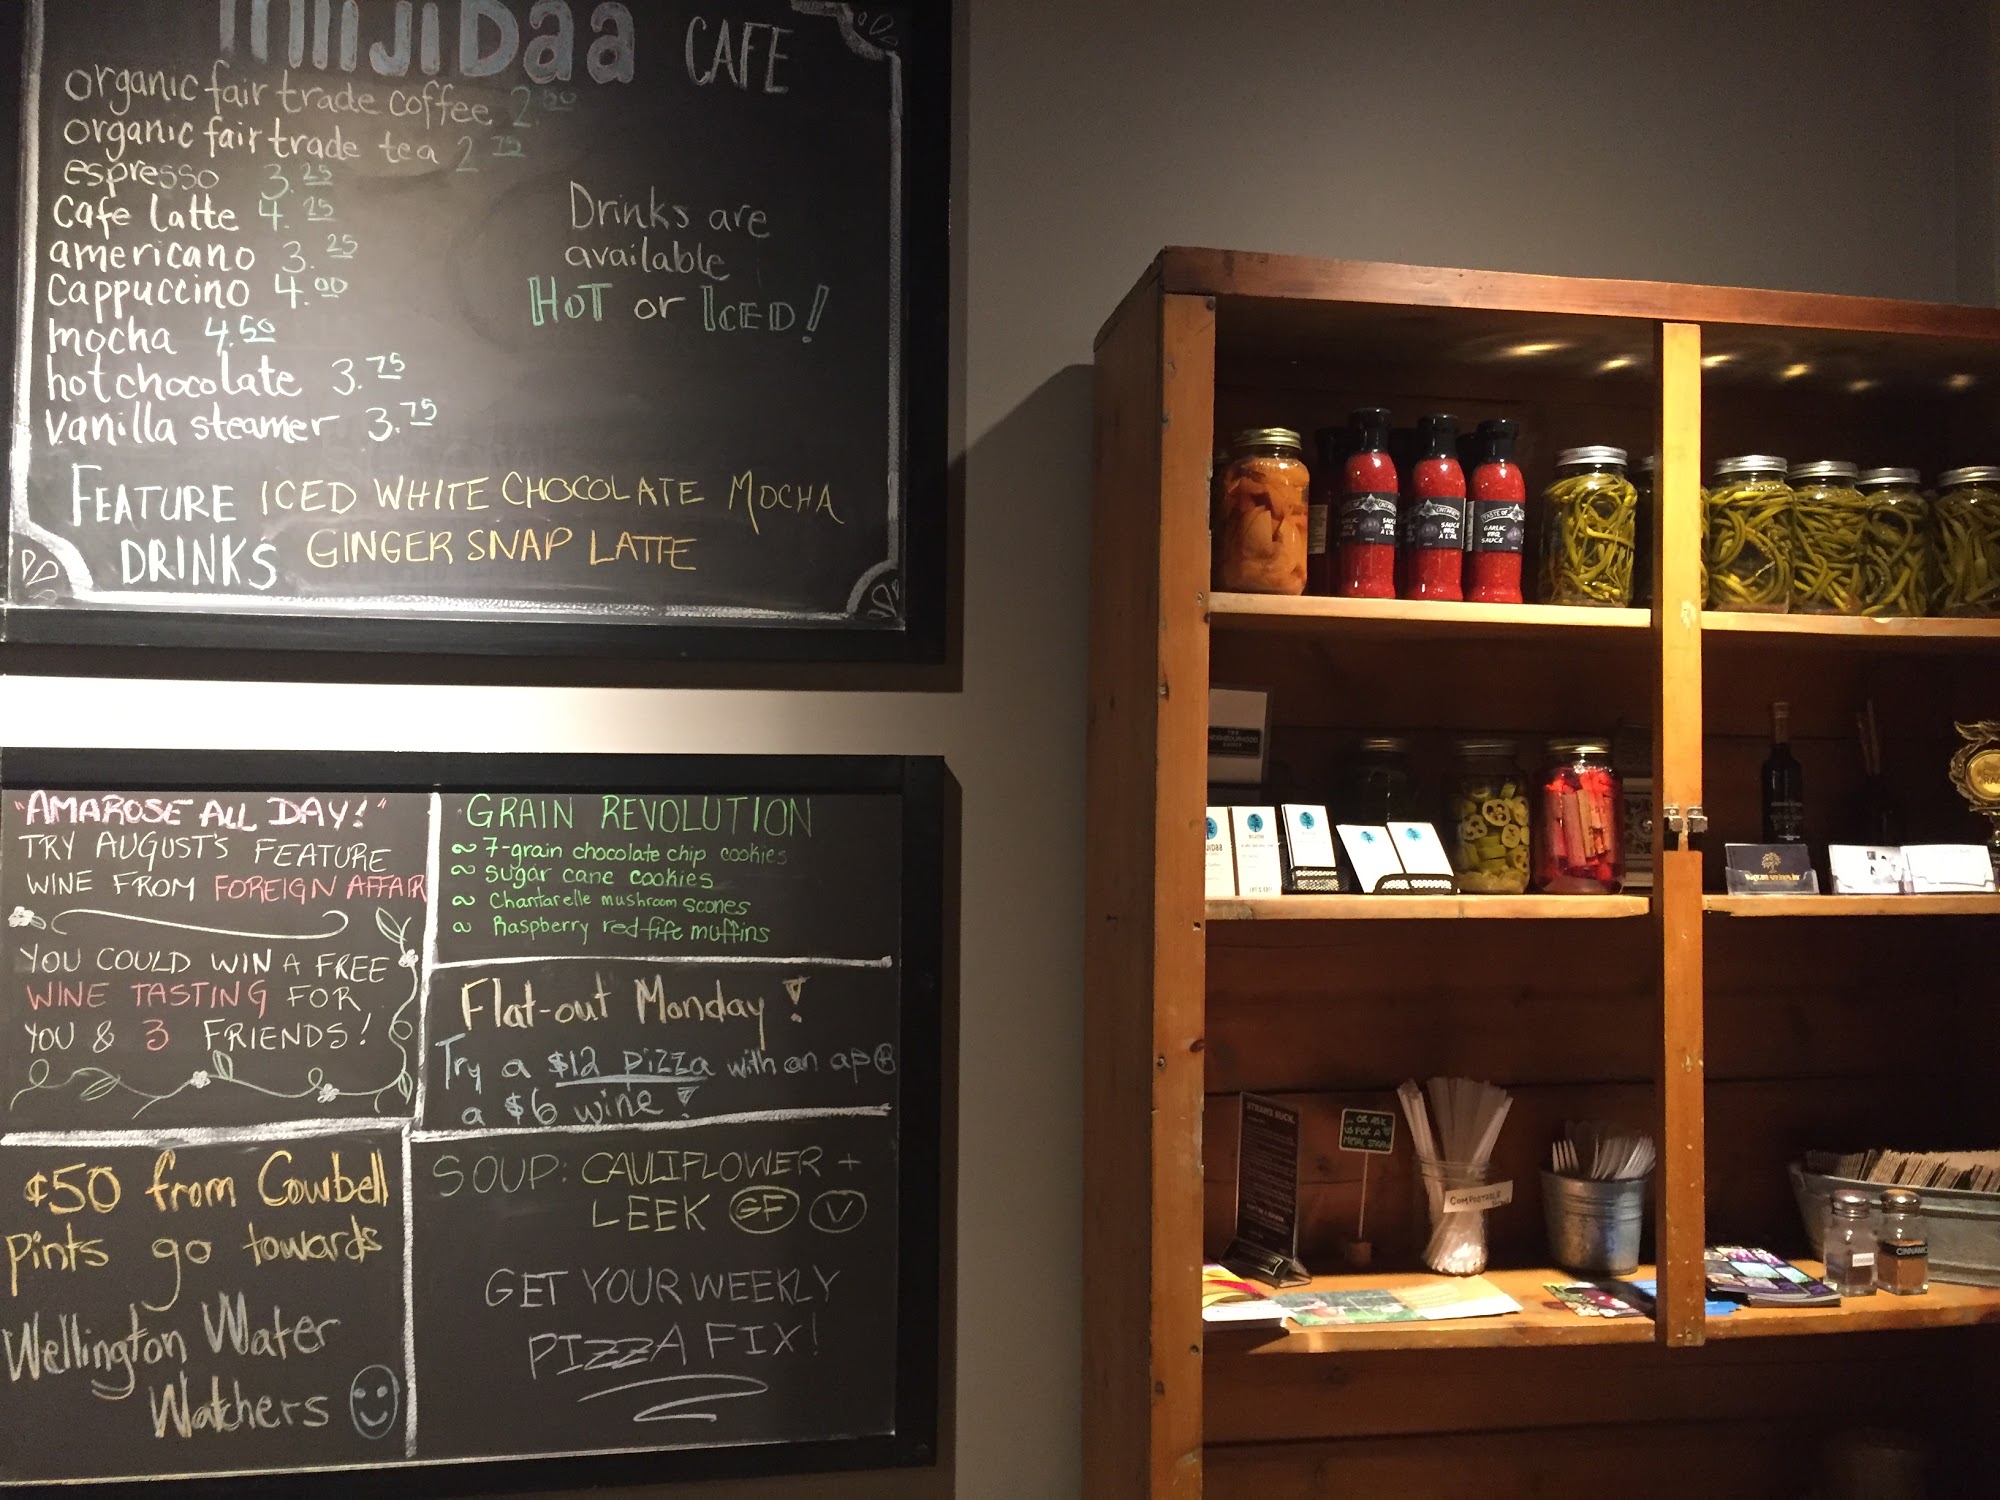 mijidaa CAFE
organic fair trade coffee 2.50
organic fair trade tea 2.75
espresso 3.25
cafe latte 4.25
americano 3.25
cappuccino 4.00
mocha 4.50
hot chocolate 3.75
vanilla steamer 3.75
Drinks are
available
HOT or ICED!
FEATURE ICED WHITE CHOCOLATE MOCHA
DRINKS GINGER SNAP LATTE
"AMAROSE ALL DAY!"
TRY AUGUST'S FEATURE
WINE FROM FOREIGN AFFAIR
YOU COULD WIN A FREE
WINE TASTING FOR
YOU & 3 FRIENDS!
GRAIN REVOLUTION
~ 7-grain chocolate chip cookies
~ sugar cane cookies
~ Chantarelle mushroom scones
~ Raspberry red fife muffins
Flat-out Monday!
Try a $12 pizza with an app
a $6 wine!
¢50 from Cowbell
pints go towards
Wellington Water
Watchers
SOUP: CAULIFLOWER +
LEEK GF V
GET YOUR WEEKLY
PIZZA FIX!
SAUCE
BBQ
À L'AIL
SAUCE
BBQ
À L'AIL
TASTE OF
GARLIC
BBQ
SAUCE
THE
NEIGHBOURHOOD
GROUP
STRAWS SUCK.
... OR ASK
US FOR A
METAL STRAW
COMPOSTABLE
CINNAMON